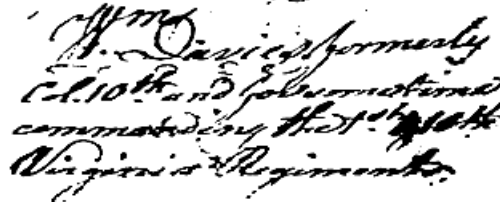 Wm
W. Davies, formerly
Col. 10th and for sometime
commanding the 1st & 10th
Virginia Regiments.